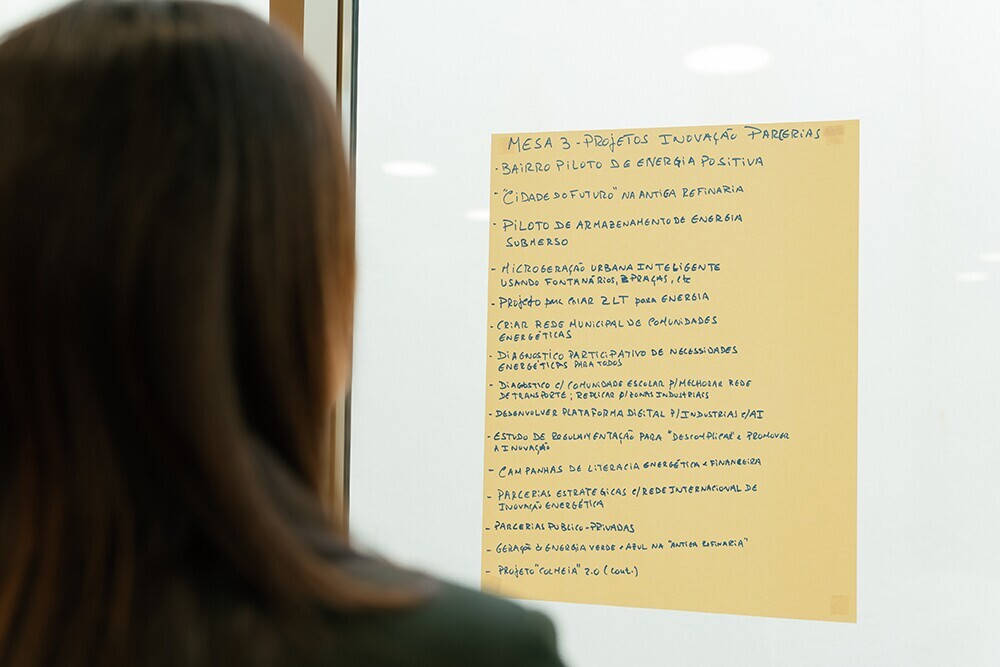 MESA 3 - PROJETOS INOVAÇÃO PARCERIAS
- BAIRRO PILOTO DE ENERGIA POSITIVA
- "CIDADE DO FUTURO" NA ANTIGA REFINARIA
- PILOTO DE ARMAZENAMENTO DE ENERGIA
SUBMERSO
- MICROGERAÇÃO URBANA INTELIGENTE
USANDO FONTANÁRIOS, PRAÇAS, etc
- PROJETO para CRIAR ZLT para ENERGIA
- CRIAR REDE MUNICIPAL DE COMUNIDADES
ENERGÉTICAS
- DIAGNOSTICO PARTICIPATIVO DE NECESSIDADES
ENERGÉTICAS PARA TODOS
- DIAGOSTICO C/ COMUNIDADE ESCOLAR P/ MELHORAR REDE
DE TRANSPORTE; REPLICAR P/ ZONAS INDUSTRIAIS
- DESENVOLVER PLATAFORMA DIGITAL P/ INDUSTRIAS C/ AI
- ESTUDO DE REGULAMENTAÇÃO PARA "DESCOMPLICAR" e PROMOVER
A INOVAÇÃO
- CAMPANHAS DE LITERACIA ENERGÉTICA e FINANCEIRA
- PARCERIAS ESTRATÉGICAS C/ REDE INTERNACIONAL DE
INOVAÇÃO ENERGÉTICA
- PARCERIAS PUBLICO-PRIVADAS
- GERAÇÃO de ENERGIA VERDE e AZUL NA "ANTIGA REFINARIA"
- PROJETO "COLMEIA" 2.0 (cont.)